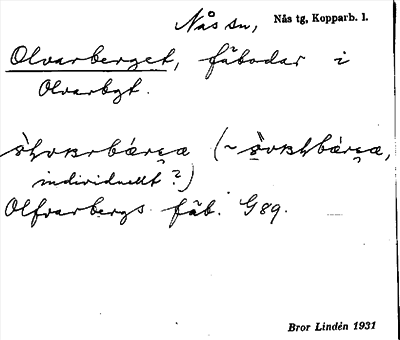 Nås sn, Nås tg, Kopparb. l.
Olvarberget, fäbodar i
Olvarbgt.
individuellt?)
Olfvarbergs fäb. G89.
Bror Lindén 1931